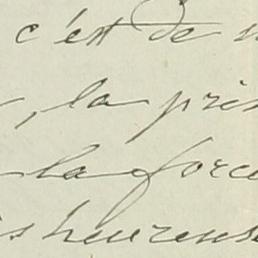 c'est de
, la
la force
heureuse